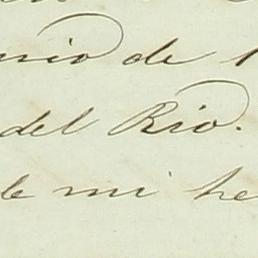 nio de
del Rio.
de mi he